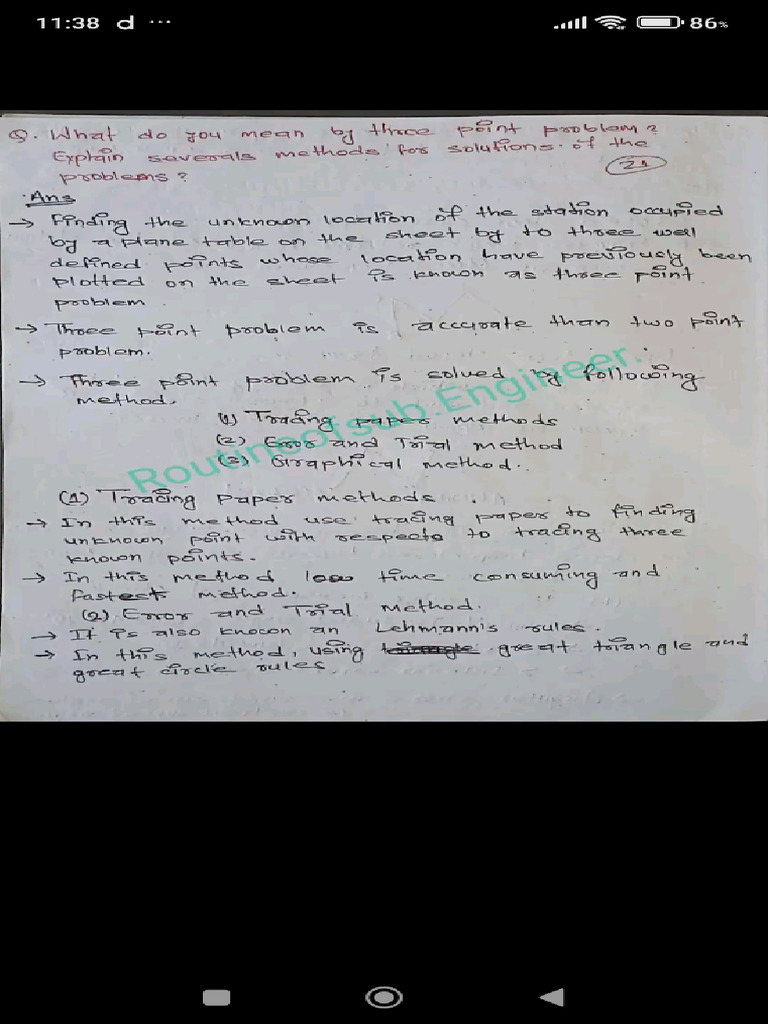 11:38 d ...
86%
Q. What do you mean by three point problem?
Explain severals methods for solutions of the
problems?
Ans
→ Finding the unknown location of the station occupied
by a plane table on the sheet by to three well
defined points whose location have previously been
plotted on the sheet is known as three point
problem.
→ Three point problem is accurate than two point
problem.
→ Three point problem is solved by following
method.
(1) Tracing paper methods
(2) Error and Trial method
(3) Graphical method.
Routineofsub.Engineer.
(1) Tracing paper methods.
→ In this method use tracing paper to finding
unknown point with respects to tracing three
known points.
→ In this method less time consuming and
fastest method.
(2) Error and Trial method.
→ It is also known an Lehmann's rules.
→ In this method, using great triangle and
great circle rules